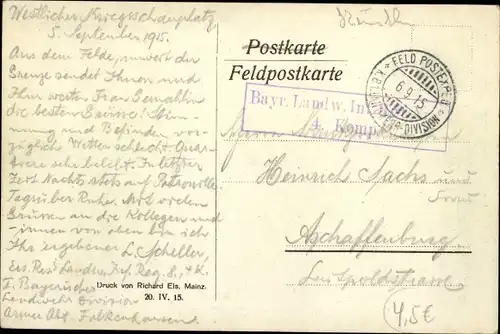 Westlicher Kriegsschauplatz,
5. September 1915.
Aus dem Felde, unweit der
Grenze sendet Ihnen und
Ihrer werten Frau Gemahlin
die besten Grüsse! Stim-
mung und Befinden vor-
züglich, Wetter schlecht, Quar-
tiere sehr belebt. In letzter
Zeit Nachts stets auf Patrouille
Tagsüber Ruhe. Mit vielen
Grüssen an die Kollegen und
-innen von oben bin ich
Ihr ergebener L. Scheller,
Ers. Res. Landw. Inf. Reg. 8, 4. K.
I. Bayerische
Landwehr Division
Armee Abt. Falkenhausen
Druck von Richard Els. Mainz.
20. IV. 15.
Postkarte
Feldpostkarte
FELD POSTEXP. D.
6.9.15
DIVISION
Bayr. Landw. In
4. Komp
Herrn
Heinrich Sachs und
Frau
Aschaffenburg
Luitpoldstrasse
4,5€